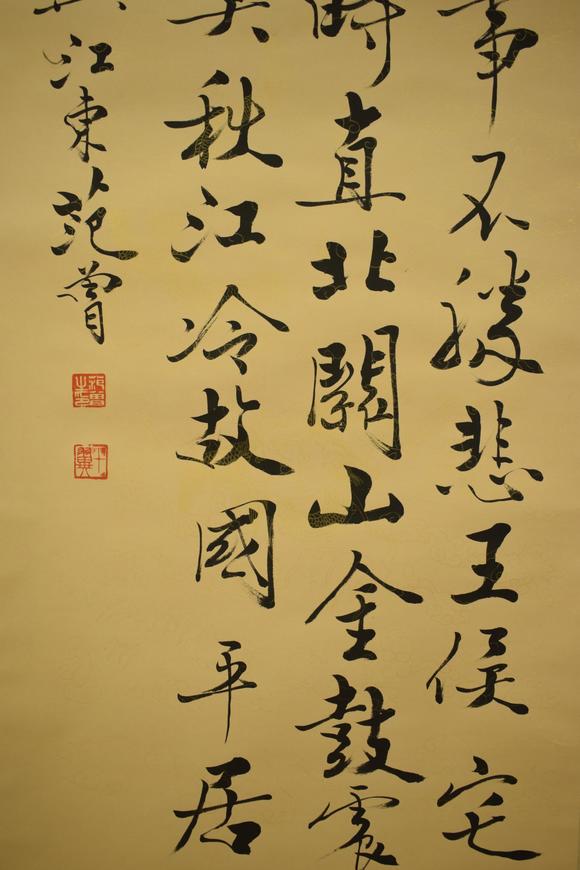 事不勝悲王侯宅
時直北關山金鼓震
秋江冷故國平居
江東范曾
十翼